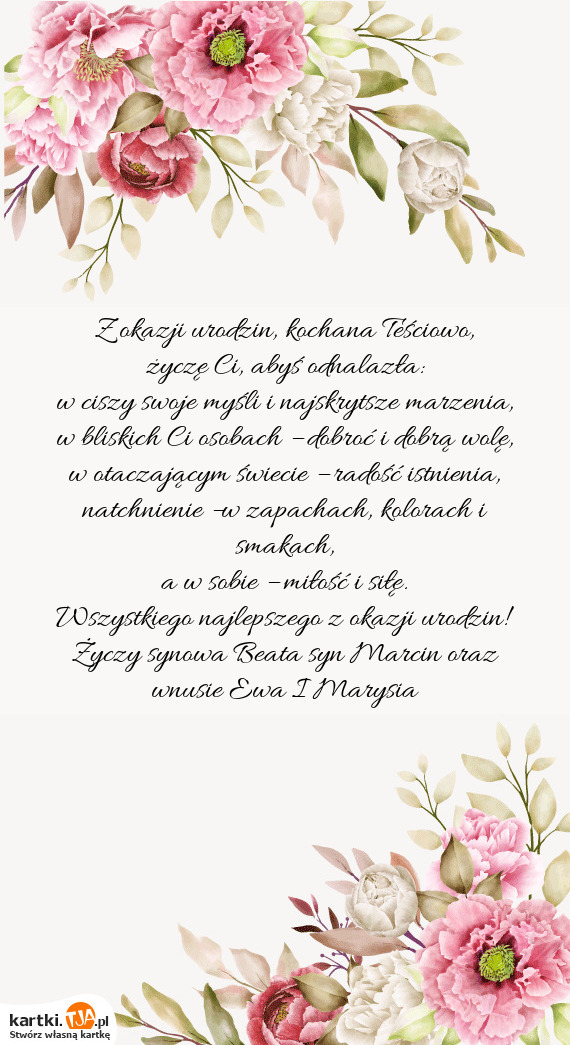 Z okazji urodzin, kochana Teściowo,
życzę Ci, abyś odnalazła:
w ciszy swoje myśli i najskrytsze marzenia,
w bliskich Ci osobach – dobroć i dobrą wolę,
w otaczającym świecie – radość istnienia,
natchnienie -w zapachach, kolorach i
smakach,
a w sobie – miłość i siłę.
Wszystkiego najlepszego z okazji urodzin!
Życzy synowa Beata syn Marcin oraz
wnusie Ewa I Marysia
kartki.TJA.pl
Stwórz własną kartkę